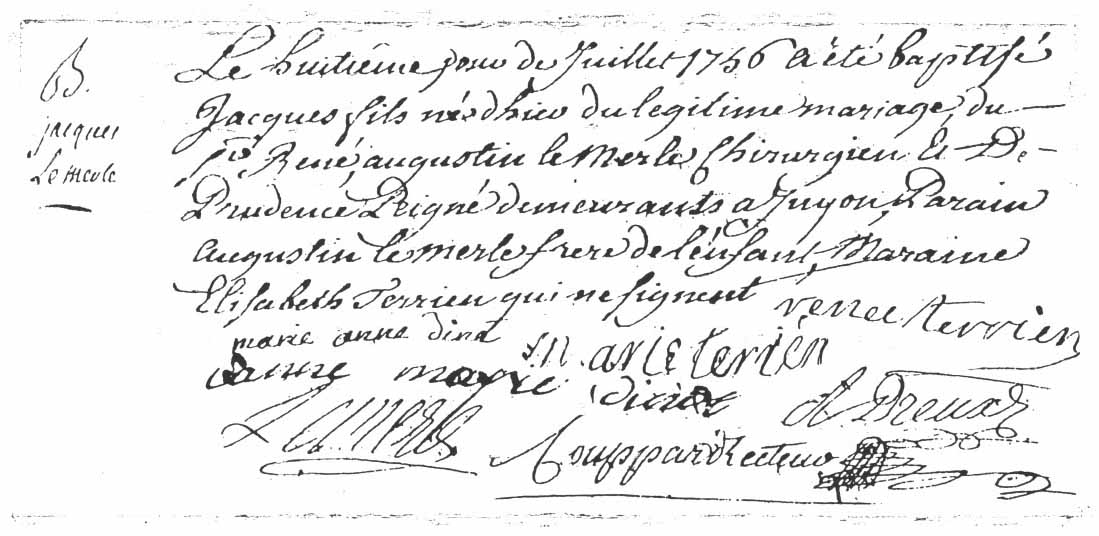 B.
jacques
Le merle
Le huitiême jour de Juillet 1756 a été baptisé
Jacques fils né d'hier du legitime mariage du
Sr. René, augustin le Merle Chirurgien Et D.
Prudence Peigné demeurants a Juyon, Parain
augustin le Merle frere de l'enfant, Maraine
Elisabeth Terrien qui ne signent
renee terrien
marie anne
marie terrien
Lemerle
Couppard Recteur